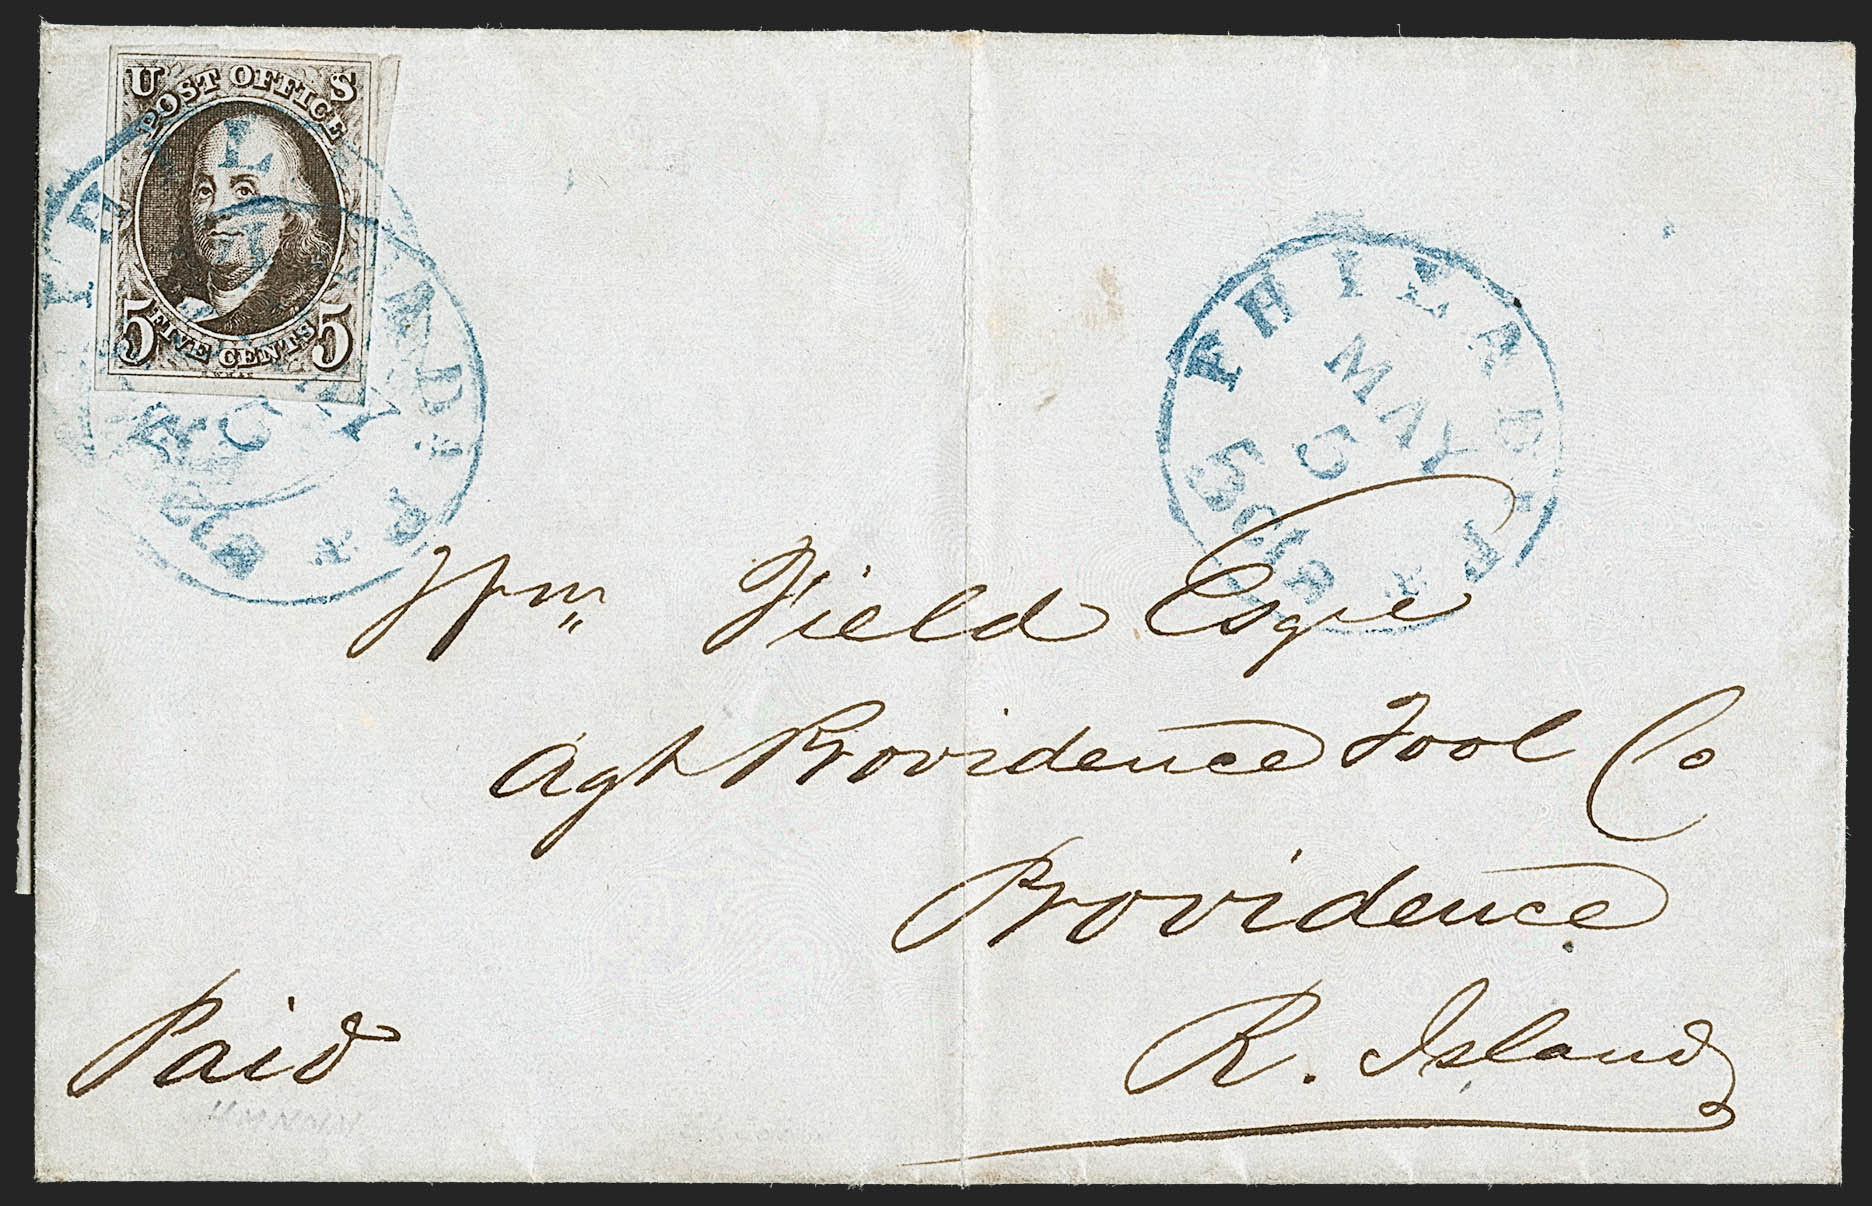 U S
POST OFFICE
5 FIVE CENTS 5
PHILAD.
PHILAD. Pa.
MAY
5
5cts
Wm Field Esqre
Agt Providence Tool Co
Providence
R. Island
Paid